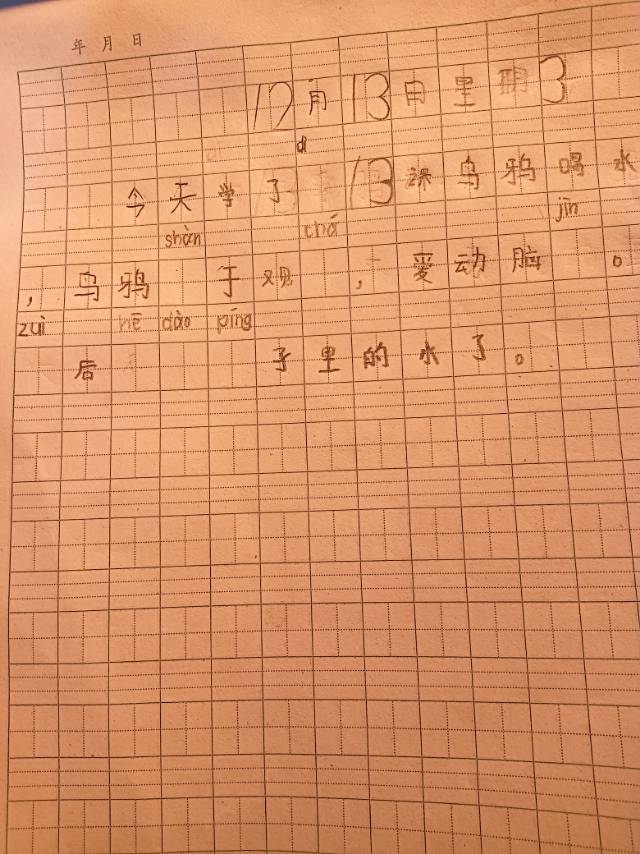 年 月 日
12月13日星期3
今天学了13课乌鸦喝水
shàn chá jīn
，乌鸦 于观 ，爱动脑 。
zuì hē dào píng
后 子里的水了。